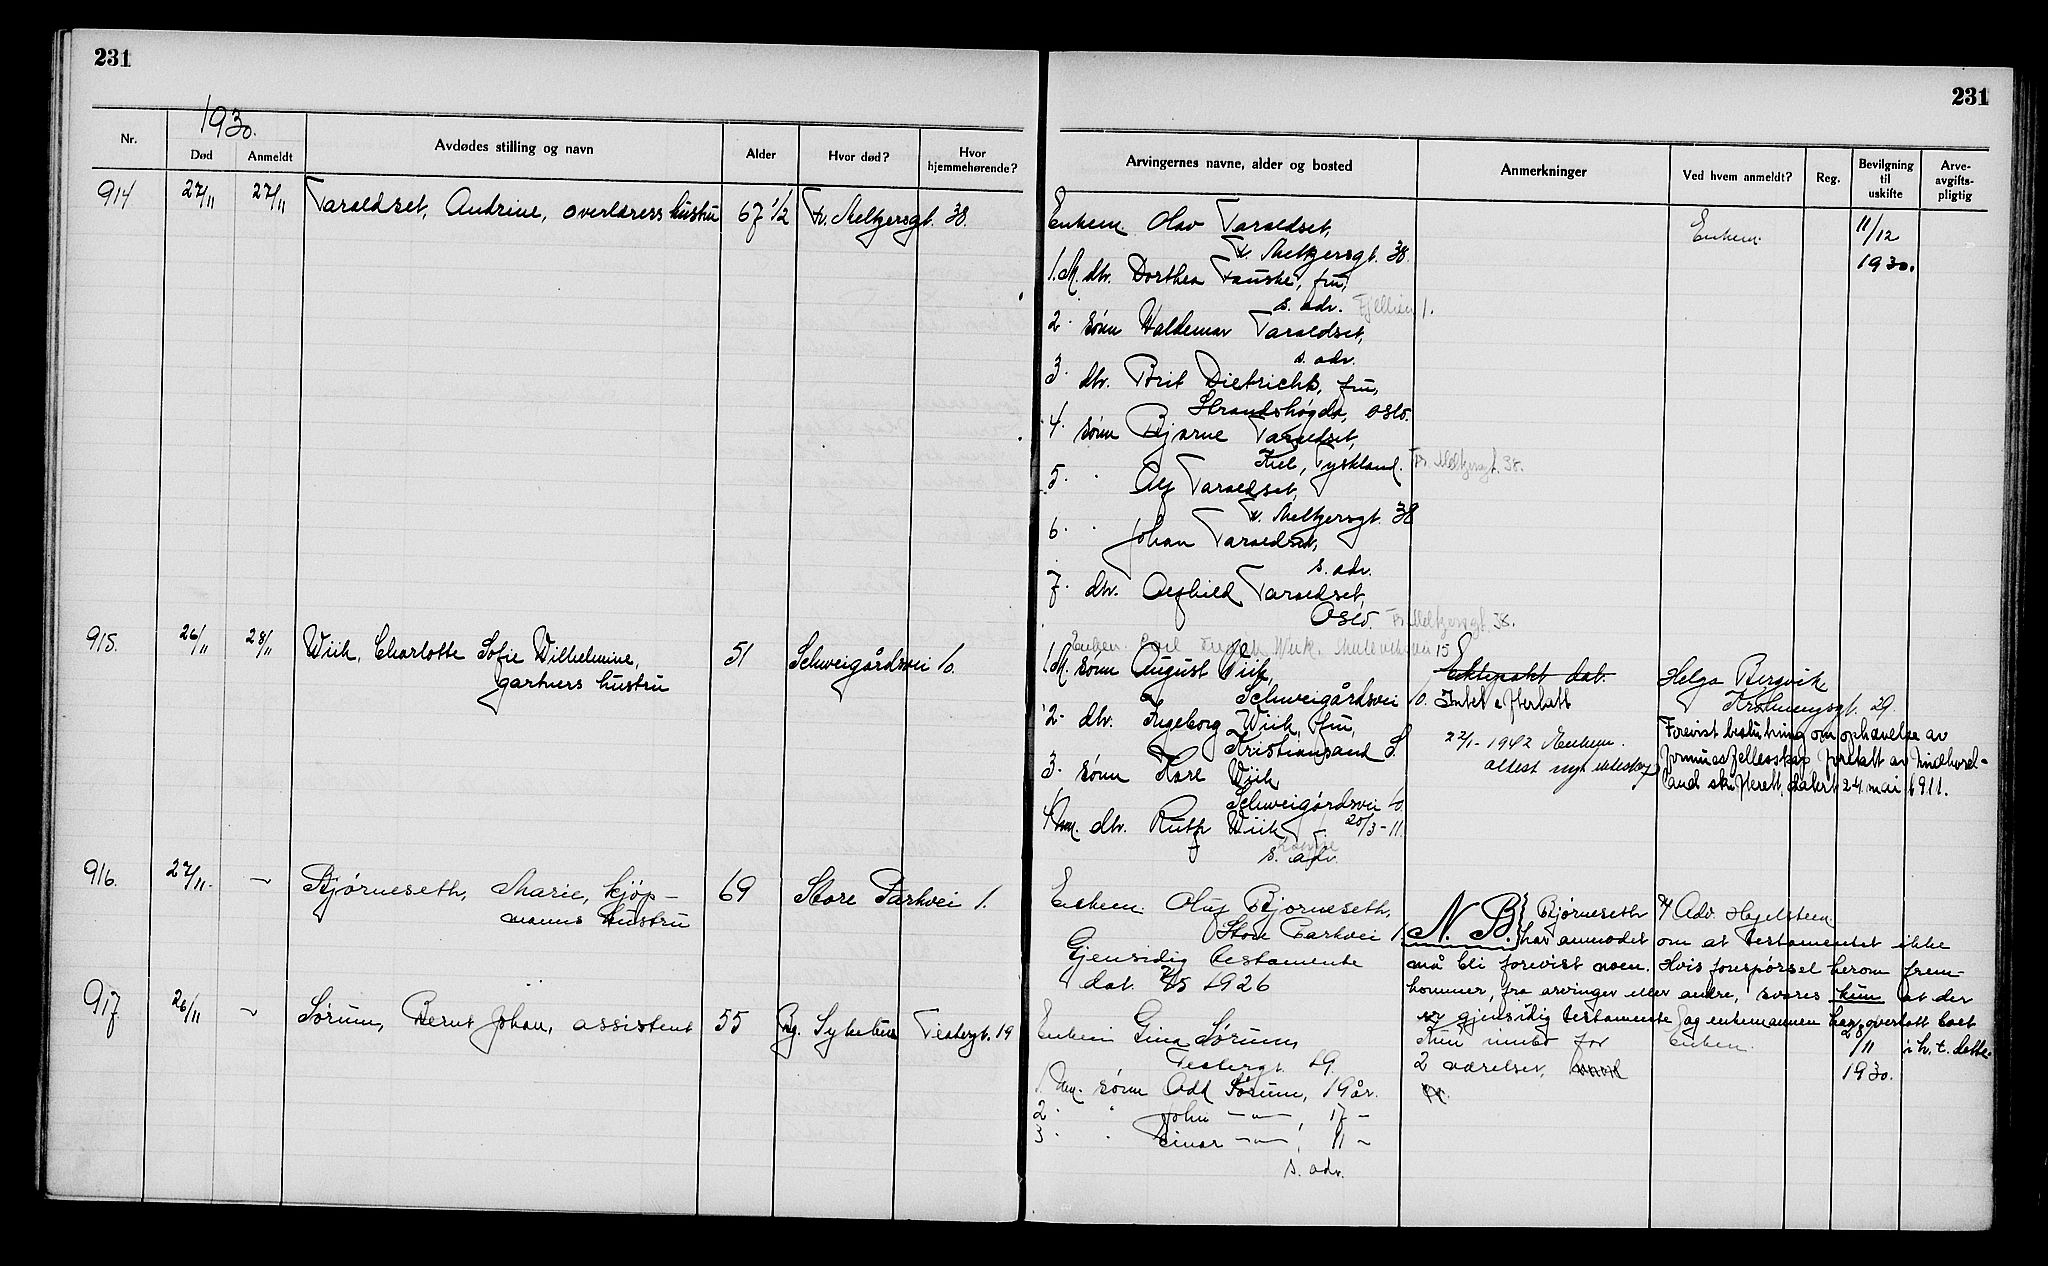 231
231
1930.
Nr.
Død
Anmeldt
Avdødes stilling og navn
Alder
Hvor død?
Hvor hjemmehørende?
Arvingernes navne, alder og bosted
Anmerkninger
Ved hvem anmeldt?
Reg.
Bevilgning til uskifte
Arve-avgifts-pligtig
914 27/11 27/11 Taraldset, Andrine, overlærers hustru 67 1/2 Fr. Meltzersgt. 38.
Enkem. Olav Taraldset,
Fr. Meltzersgt. 38.
1. M. dtr. Dorthea Fauske, fru,
s. adr. Fjellien 1.
2. sønn Valdemar Taraldset,
s. adr.
3. dtr. Brit Dietrichs, fru,
Strandshøgda, Oslo.
4. sønn Bjarne Taraldset,
Kiel, Tyskland. Fr. Meltzersgt. 38.
5. " Alf Taraldset,
Fr. Meltzersgt. 38
6. " Johan Taraldset,
s. adr.
7. dtr. Alfhild Taraldset,
Oslo. Fr. Meltzersgt. 38.
Enkem.
11/12
1930.
915. 26/11 28/11 Wiik, Charlotte Sofie Wilhelmine,
gartners hustru
51 Schweigårdsvei 10.
Enkem. Carl Wiik. 15
1. M. sønn August Wiik,
Schweigårdsvei 10.
2. dtr. Ingeborg Wiik, fru,
Kristiansand S.
3. sønn Kare Wiik
Schweigårdsvei 10
4. Um. dtr. Ruth Wiik, f. 20/3-11.
s. adr.
Ektepakt dat.
Intet efterlatt
22/1-1942 Enkem.
attest nyt ekteskap
Helga Bergvik
Krohnengt. 29.
Forevist beslutning om ophævelse av
formuesfellesskap forfatt av Midthord-
land skifterett, datert 24 mai 1911.
916. 27/11. — Bjørneseth, Marie, kjøp-
manns hustru
69 Store Parkvei 1.
Enkem. Oluf Bjørneseth,
Store Parkvei 1.
Gjensidig testamente
dat. 1926
N.B. Bjørneseth v/ Adv. Hagelsteen
har anmodet om at testamentet ikke
må bli forevist noen. Hvis forespørsel herom frem-
kommer, fra arvinger eller andre, svares kun at der
er gjensidig testamente og enkemannen har overtatt boet
i h. t. dette.
917. 26/11 — Sørum, Bernt Johan, assistent 55 Bg. Sykehus Teatergt. 19
Enkem Gina Sørum,
Teatergt. 19.
1. Um. sønn Odd Sørum, 19 år.
2. " John —"—, 17 —
3. " Einar —"—, 11 —
s. adr.
Kun innbo for
2 værelser,
Enken.
28/11
1930.